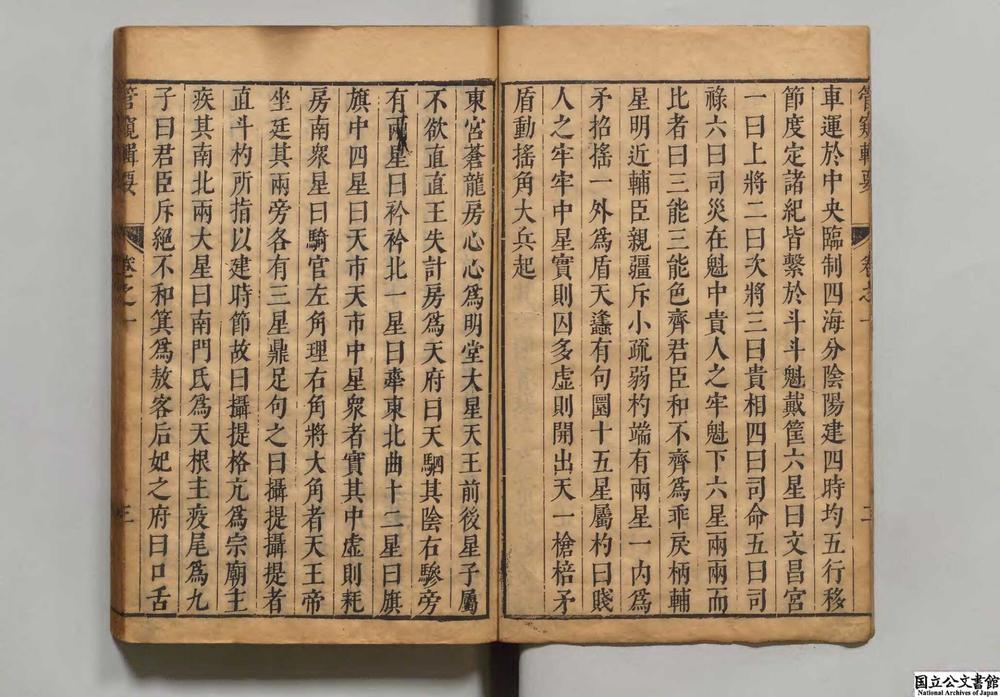 管窺輯要 卷之一 二
車運於中央臨制四海分陰陽建四時均五行移
節度定諸紀皆繫於斗斗魁戴筐六星曰文昌宮
一曰上將二曰次將三曰貴相四曰司命五曰司
祿六曰司災在魁中貴人之牢魁下六星兩兩而
比者曰三能三能色齊君臣和不齊為乖戾柄輔
星明近輔臣親疆斥小疏弱杓端有兩星一內為
矛招搖一外為盾天蠭有句圜十五星屬杓曰賤
人之牢牢中星實則囚多虛則開出天一槍棓矛
盾動搖角大兵起
東宮蒼龍房心心為明堂大星天王前後星子屬
不欲直直王失計房為天府曰天駟其陰右驂旁
有兩星曰衿衿北一星曰舝東北曲十二星曰旗
旗中四星曰天市天市中星衆者實其中虛則耗
房南衆星曰騎官左角理右角將大角者天王帝
坐廷其兩旁各有三星鼎足句之曰攝提攝提者
直斗杓所指以建時節故曰攝提格亢為宗廟主
疾其南北兩大星曰南門氐為天根主疫尾為九
子曰君臣斥絕不和箕為敖客后妃之府曰口舌
管窺輯要 卷之一 三
国立公文書館
National Archives of Japan